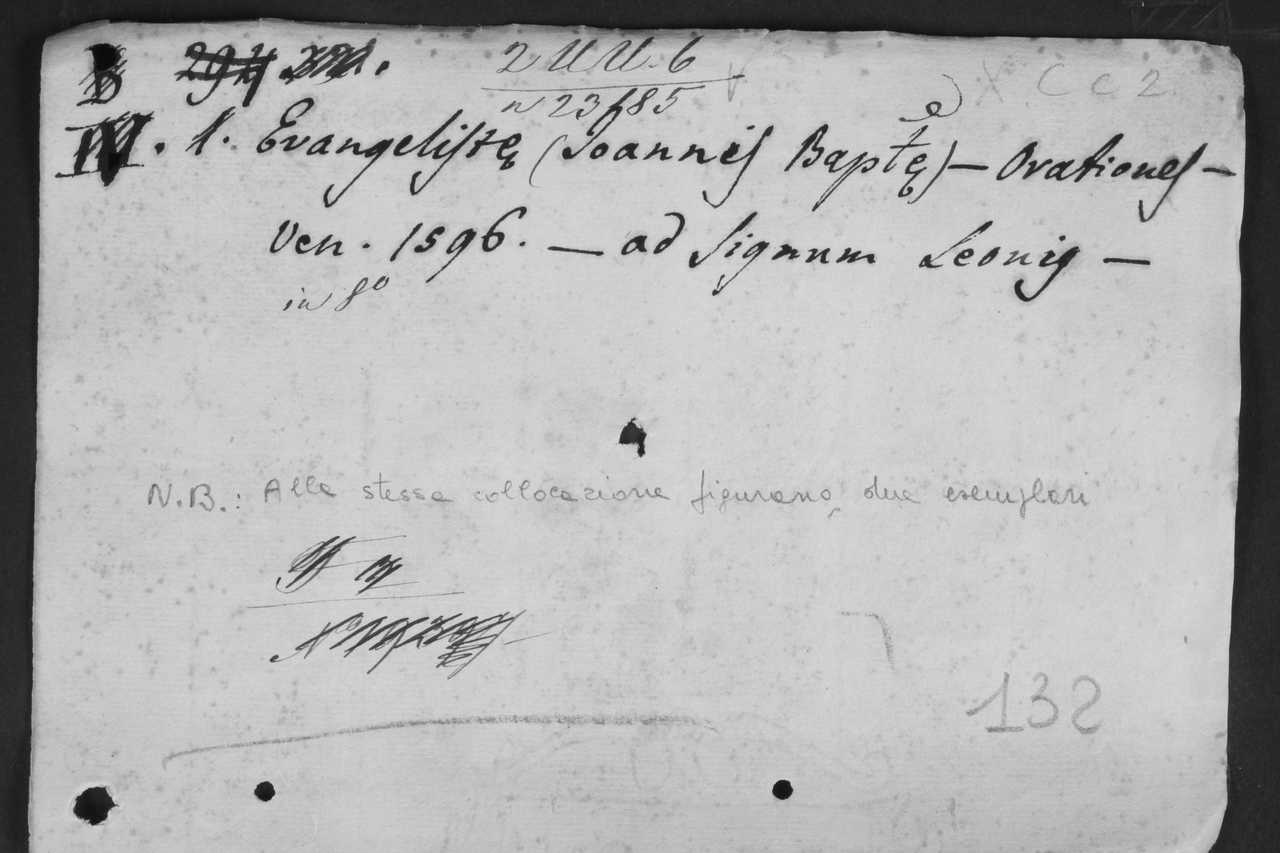 2 UU. 6
n 23685
X C C 2
IV. 1. Evangelistę (Joannis Baptę) — Orationes —
Ven. 1596. — ad signum Leonis —
in 8º
N.B.: Alla stessa collocazione figurano due esemplari
132